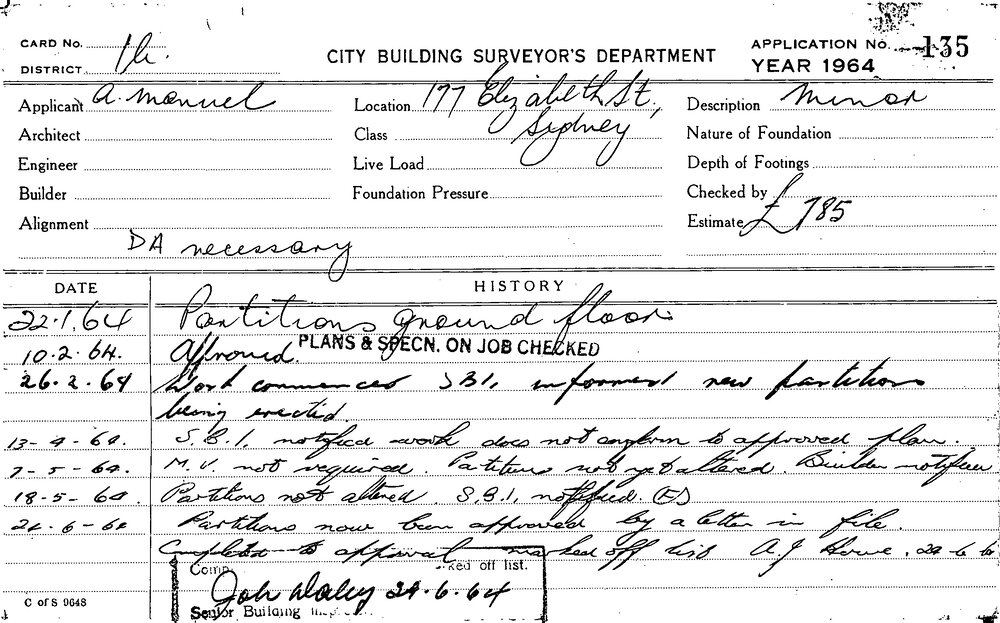 CARD No. 1k.
DISTRICT
CITY BUILDING SURVEYOR'S DEPARTMENT
APPLICATION No. 135
YEAR 1964
Applicant A. Manuel
Location 177 Elizabeth St.,
Sydney
Description Minor
Architect
Class
Nature of Foundation
Engineer
Live Load
Depth of Footings
Builder
Foundation Pressure
Checked by
Alignment
Estimate £785
DA necessary
DATE HISTORY
22.1.64 Partitions ground floor.
10.2.64. Approved. PLANS & SPECN. ON JOB CHECKED
26.2.64 Work commenced S.B.I. informed new partitions
being erected
13-4-64. S.B.I. notified work does not conform to approved plan.
7-5-64. M.V. not required. Partitions not yet altered. Builder notified
18-5-64. Partitions not altered. S.B.I. notified.
24-6-64 Partitions now been approved by a letter in file.
Completed to approval marked off list A.J. Howe. 24-6-6
Comp ked off list.
24.6.64
Senior Building
C of S 9648